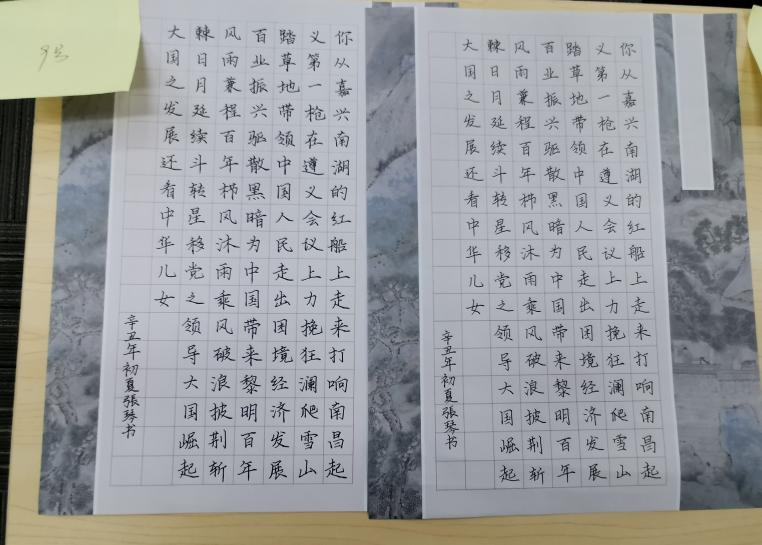 9号
你从嘉兴南湖的红船上走来打响南昌起
义第一枪在遵义会议上力挽狂澜爬雪山
踏草地带领中国人民走出困境经济发展
百业振兴驱散黑暗为中国带来黎明百年
风雨兼程百年栉风沐雨乘风破浪披荆斩
棘日月延续斗转星移党之领导大国崛起
大国之发展还看中华儿女
辛丑年初夏張琴书
你从嘉兴南湖的红船上走来打响南昌起
义第一枪在遵义会议上力挽狂澜爬雪山
踏草地带领中国人民走出困境经济发展
百业振兴驱散黑暗为中国带来黎明百年
风雨兼程百年栉风沐雨乘风破浪披荆斩
棘日月延续斗转星移党之领导大国崛起
大国之发展还看中华儿女
辛丑年初夏張琴书